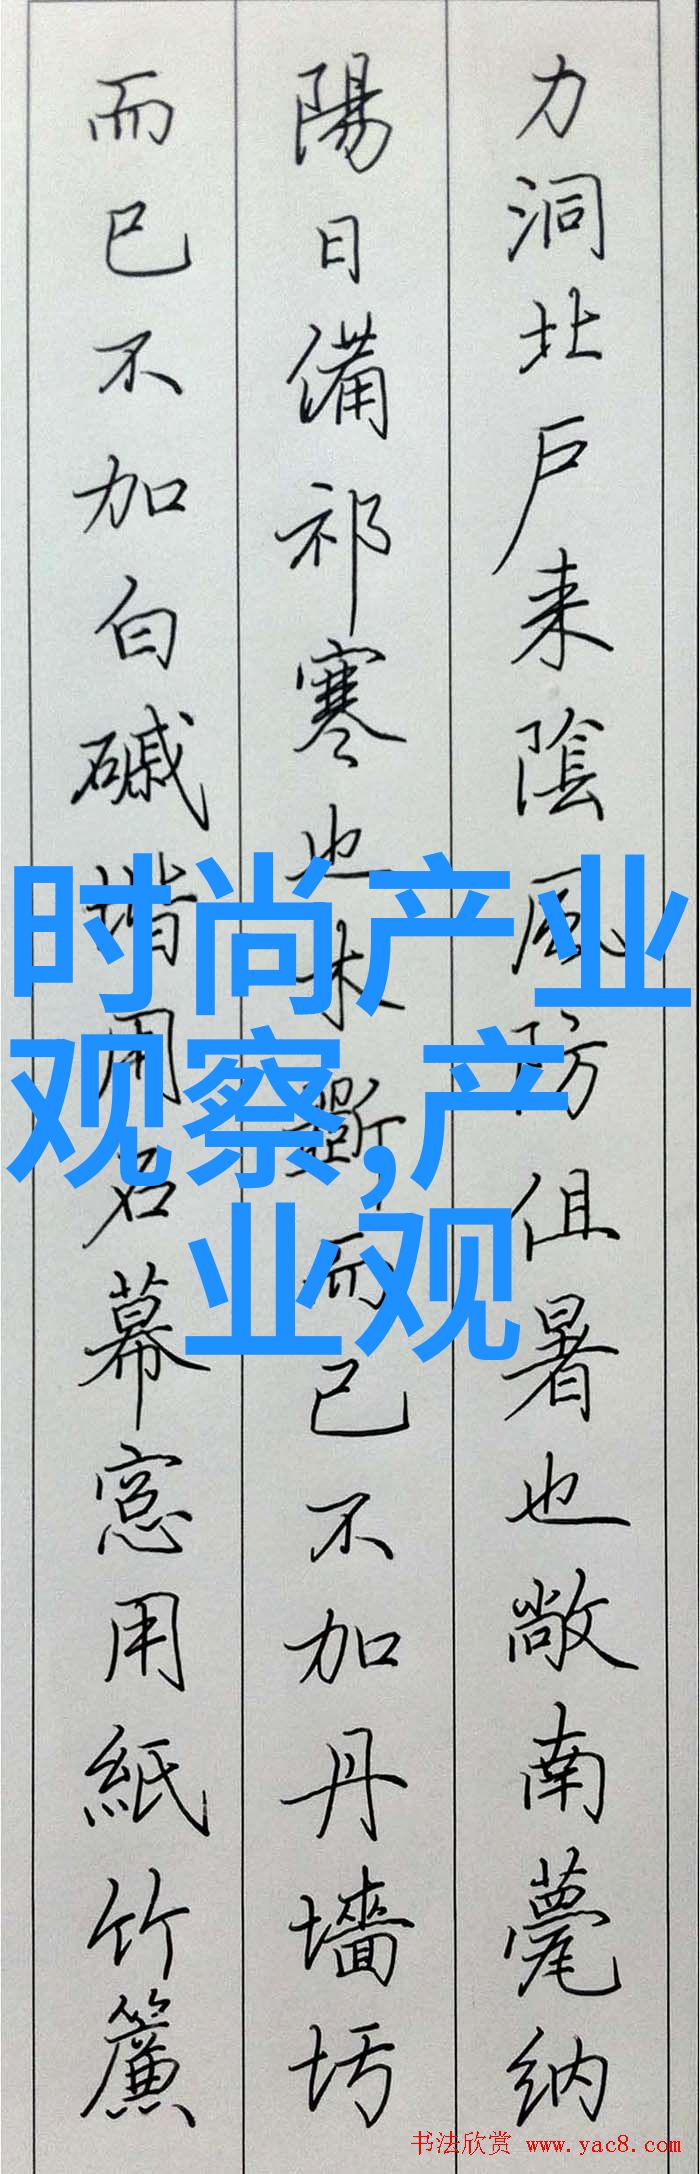 力洞北户来陰風防徂暑也敞南甍纳
陽日備祁寒也木斲而已不加丹墻圬
而已不加白磩堦用石幕窓用紙竹簾
时尚产业
观察,产
业观
书法欣赏 www.yac8.com